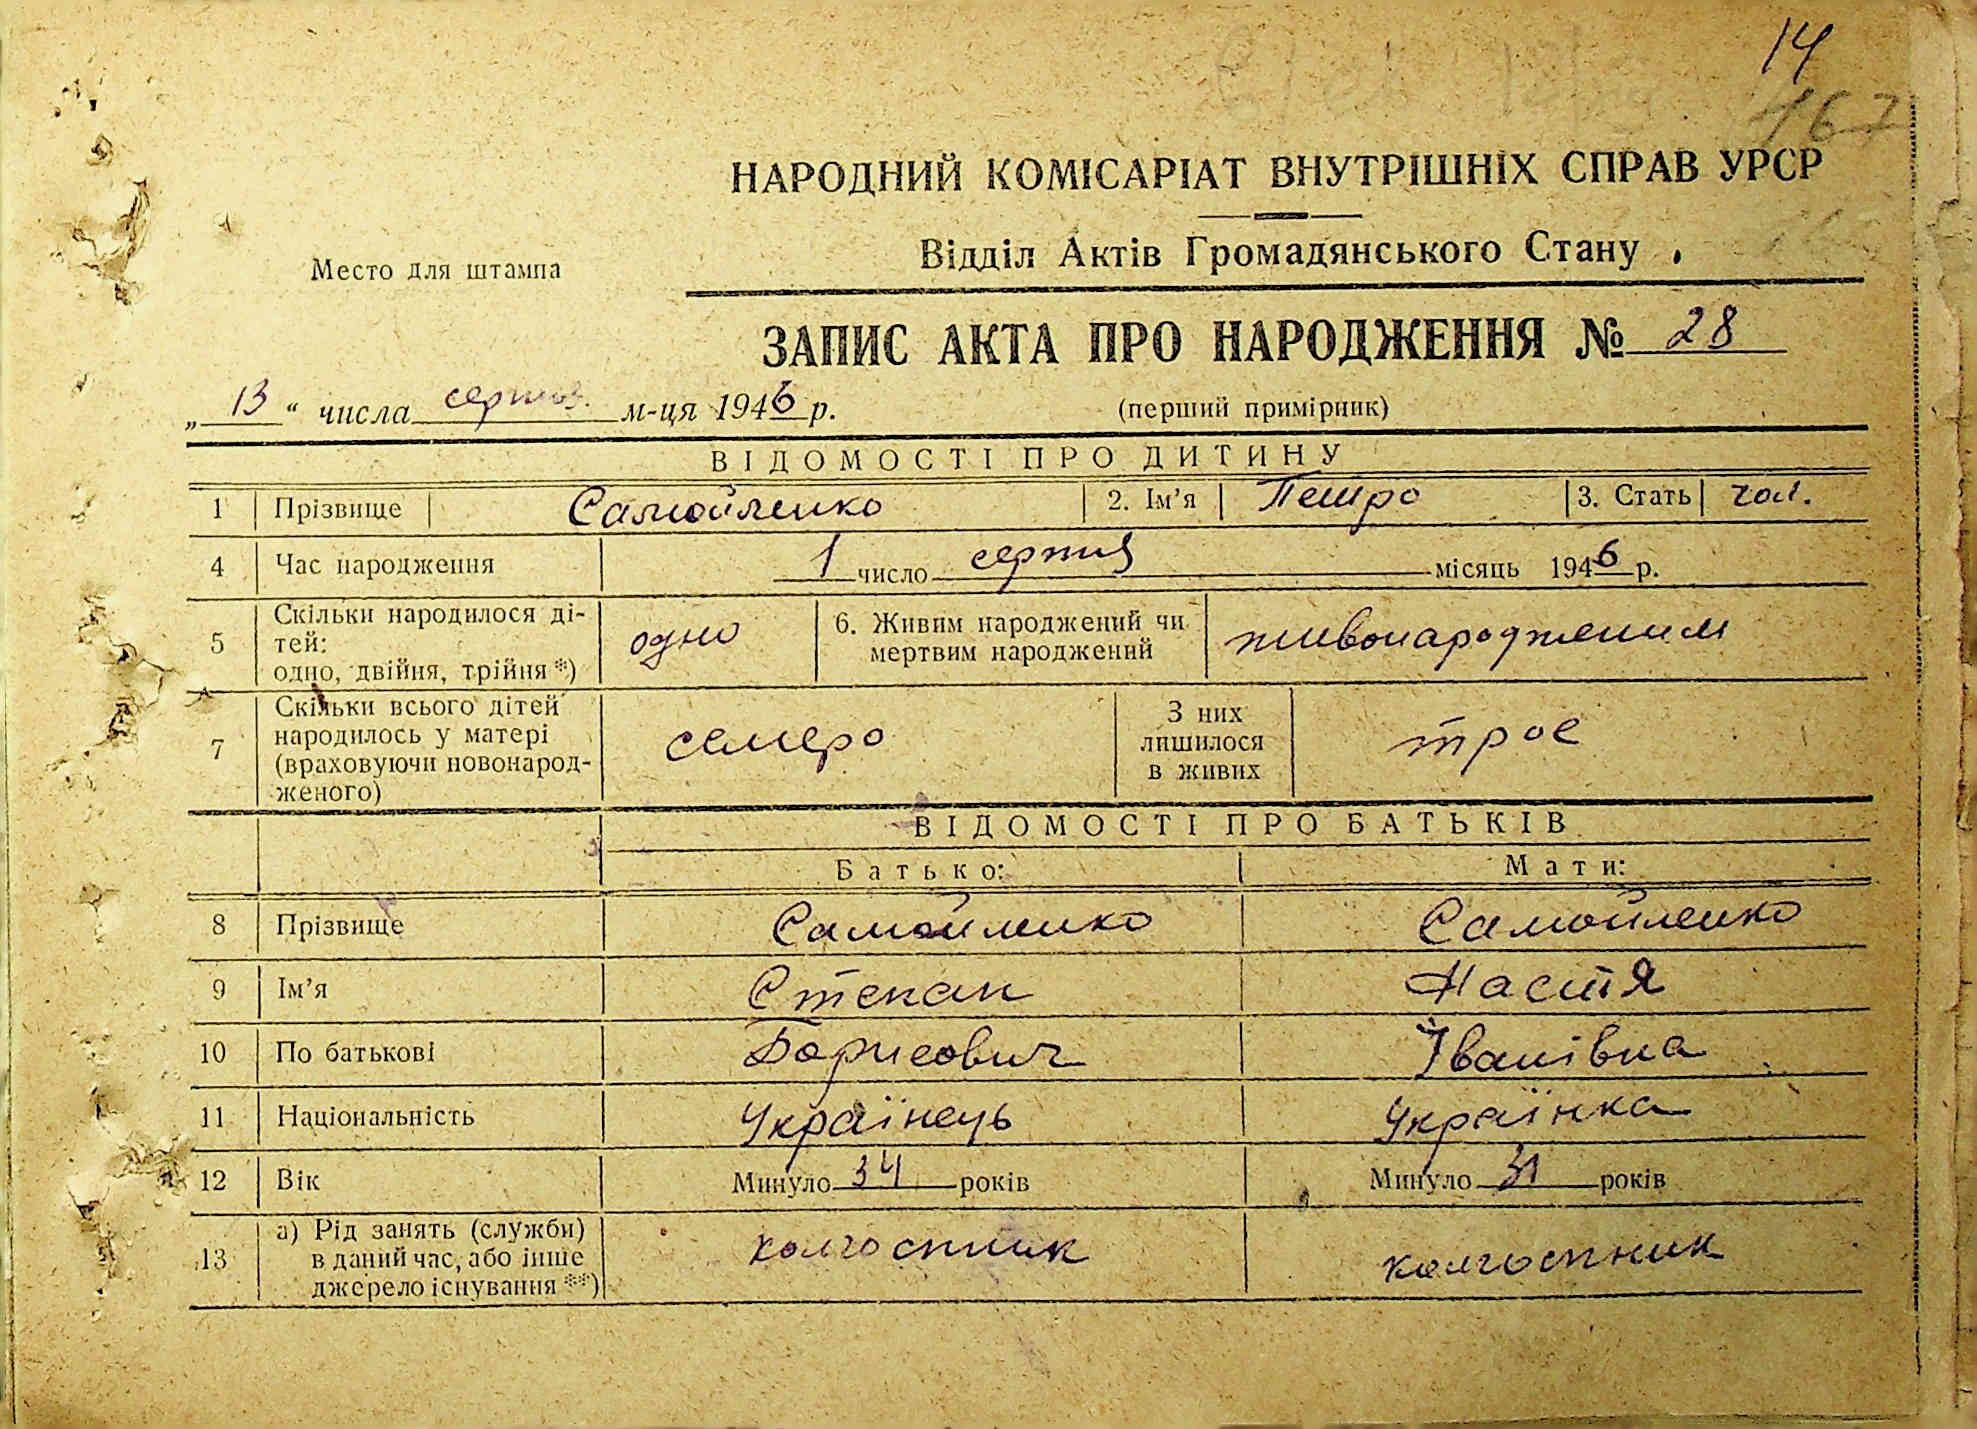 14
167
НАРОДНИЙ КОМІСАРІАТ ВНУТРІШНІХ СПРАВ УРСР
Место для штампа
Відділ Актів Громадянського Стану
ЗАПИС АКТА ПРО НАРОДЖЕННЯ № 28
„13“ числа серпня м-ця 1946 р.
(перший примірник)
ВІДОМОСТІ ПРО ДИТИНУ
1 Прізвище Самойленко 2. Ім’я Петро 3. Стать чол.
4 Час народження 1 число серпня місяць 1946 р.
5 Скільки народилося ді-
тей:
одно, двійня, трійня *) одно 6. Живим народжений чи
мертвим народжений живонародженим
7 Скільки всього дітей
народилось у матері
(враховуючи новонарод-
женого) семеро З них
лишилося
в живих троє
ВІДОМОСТІ ПРО БАТЬКІВ
Батько: Мати:
8 Прізвище Самойленко Самойленко
9 Ім’я Степан Настя
10 По батькові Борисович Іванівна
11 Національність Українець Українка
12 Вік Минуло 34 років Минуло 31 років
13 а) Рід занять (служби)
в даний час, або інше
джерело існування **) колгоспник колгоспник